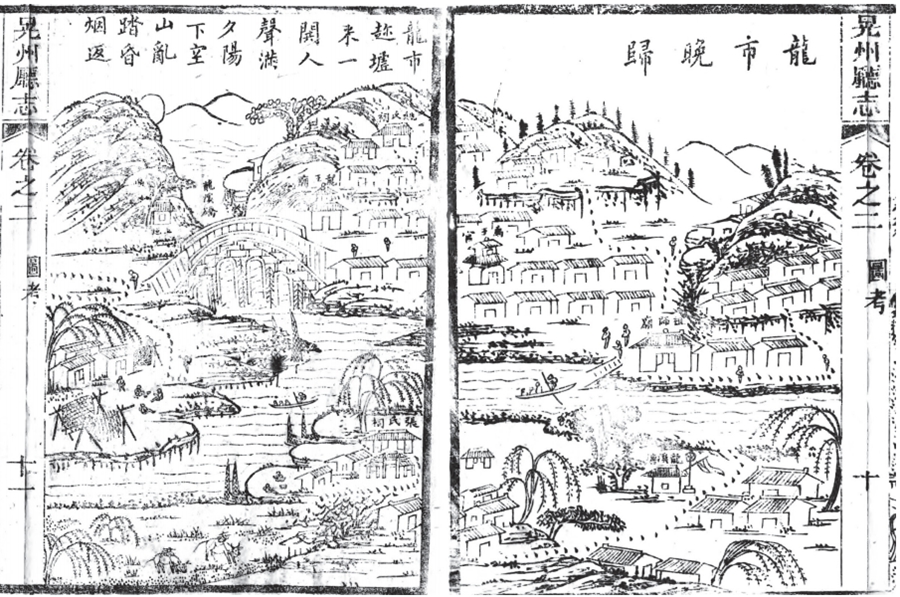 晃州廳志
卷之二
圖考
十
龍市晚歸
祖師廟
龍市
趂墟
来一
閧人
聲滿
夕陽
下空
山亂
踏昏
烟返
姚氏祠
龍王廟
龍溪橋
張氏祠
晃州廳志
卷之二
圖考
十一